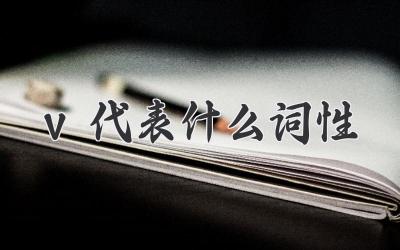 v 代表什么词性